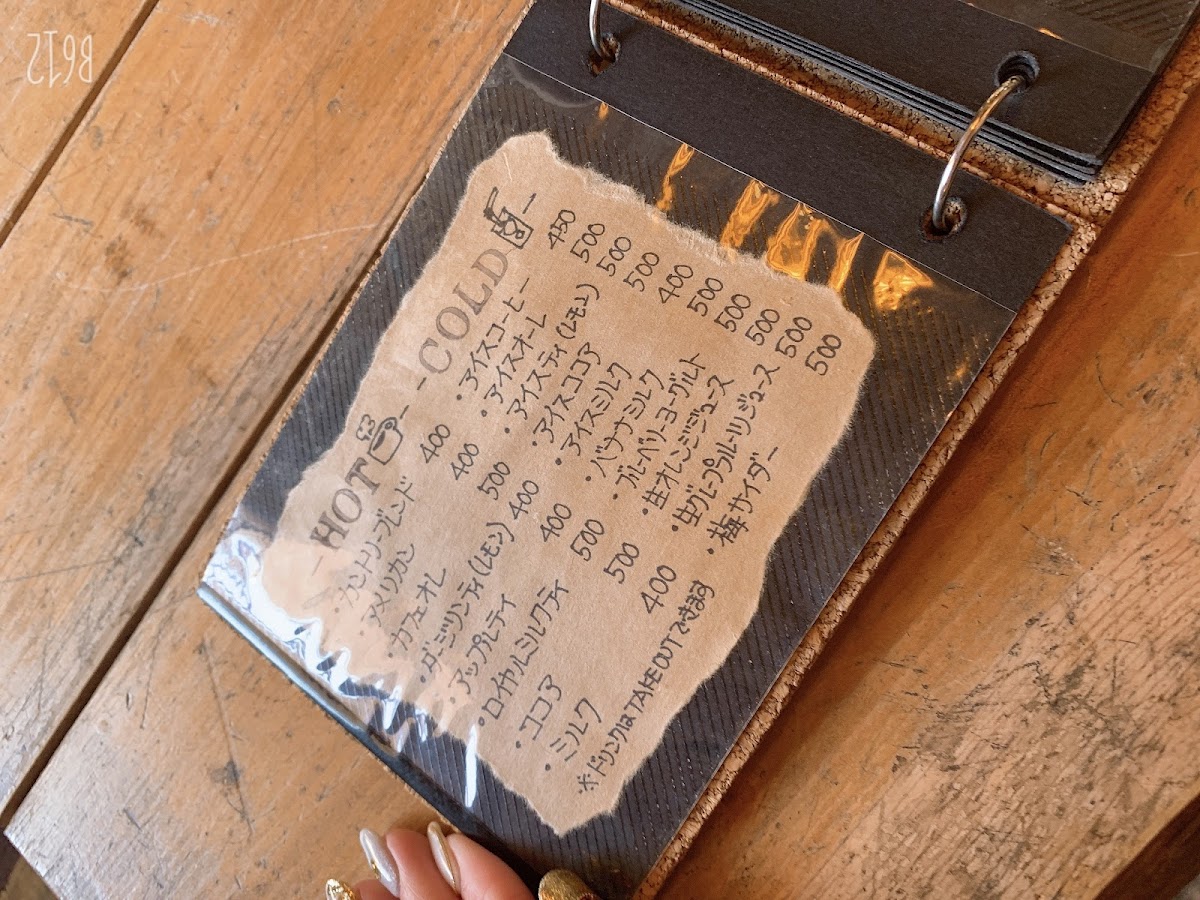 B612
-HOT-
・カントリーブレンド 400
・アメリカン 400
・カフェオレ 500
・ダージリンティ(レモン) 400
・アップルティ 400
・ロイヤルミルクティ 500
・ココア 500
・ミルク 400
※ドリンクはTAKE OUTできます
-COLD-
・アイスコーヒー 450
・アイスオーレ 500
・アイスティ(レモン) 500
・アイスココア 500
・アイスミルク 400
・バナナミルク 500
・ブルーベリーヨーグルト 500
・生オレンジジュース 500
・生グレープフルーツジュース 500
・梅サイダー 500